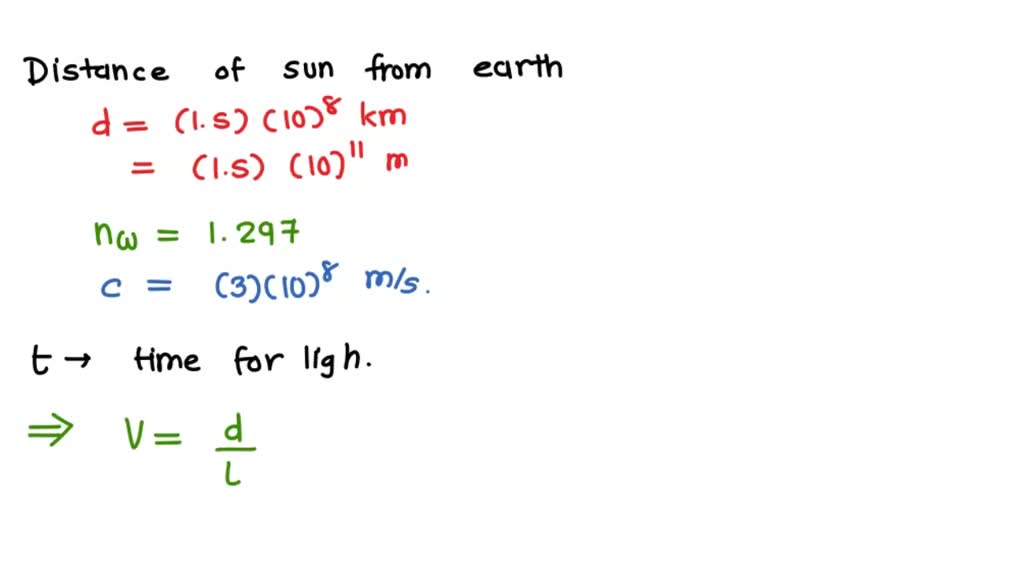 Distance of sun from earth
d = (1.5) (10)^8 km
= (1.5) (10)^11 m
nω = 1.297
c = (3)(10)^8 m/s.
t → time for ligh.
⇒ V = d/L